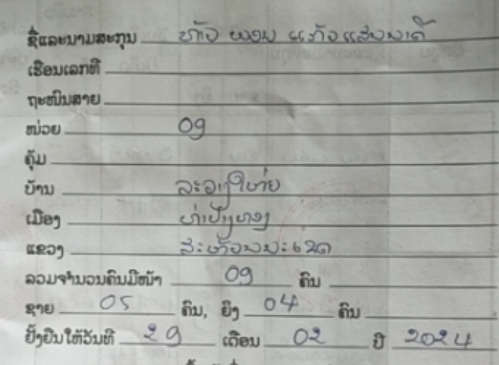 ຊື່ແລະນາມສະກຸນ ທ້າວ ພອນ ແກ້ວແສນພະດີ
ເຮືອນເລກທີ
ຖະໜົນສາຍ
ໜ່ວຍ 09
ຄຸ້ມ
ບ້ານ ລະວາງໃຫຍ່
ເມືອງ
ແຂວງ ສະຫວັນນະເຂດ
ລວມຈຳນວນຄົນມີໜ້າ 09 ຄົນ
ຊາຍ 05 ຄົນ, ຍິງ 04 ຄົນ
ຢັ້ງຢືນໃຫ້ວັນທີ 29 ເດືອນ 02 ປີ 2024